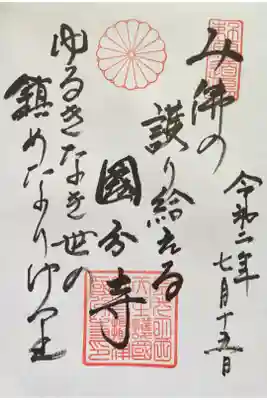 み佛の
護り給える
國分寺
ゆるきなき世の
鎮めなりけ里
令和二年
七月十五日